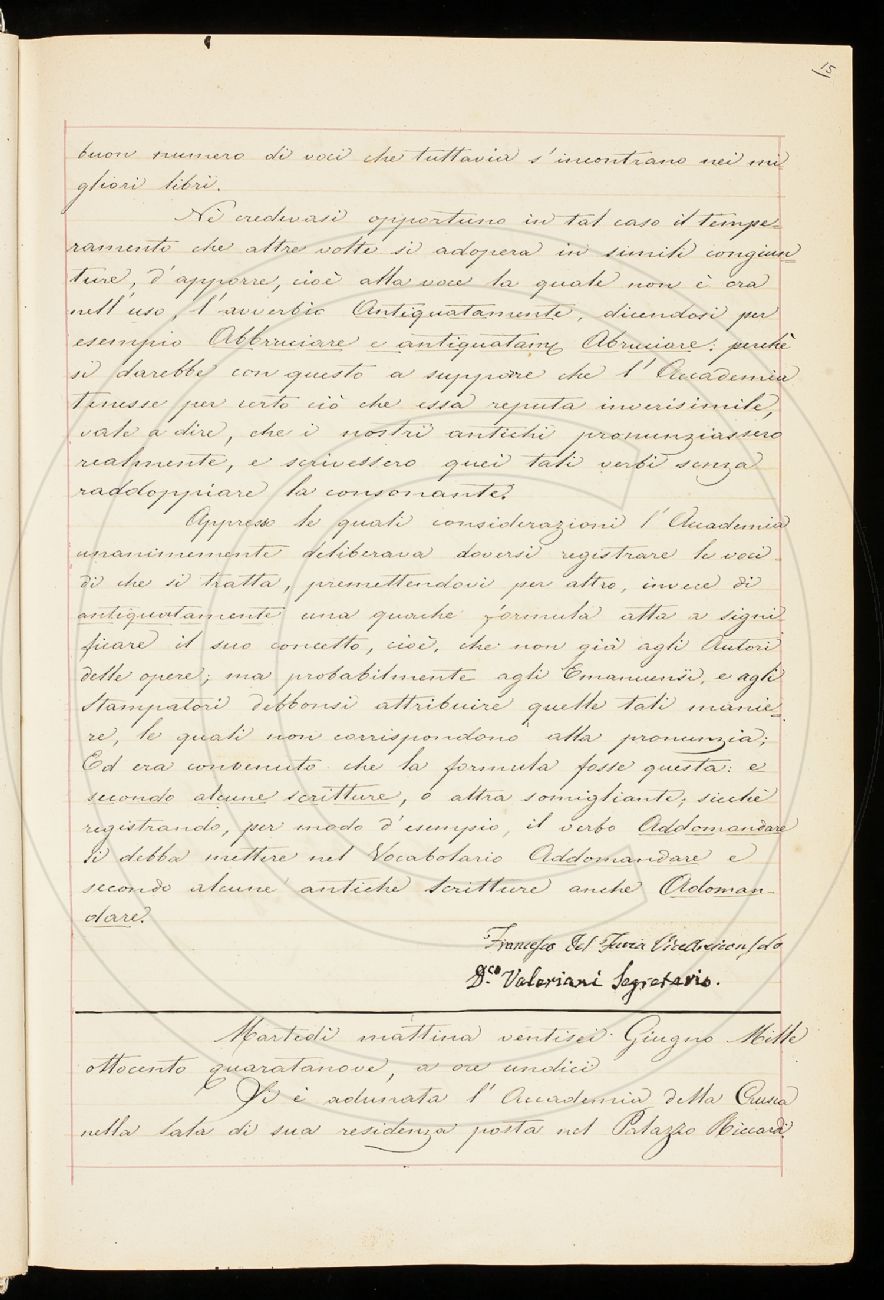 15
buon numero di voci che tuttavia s'incontrano nei mi
gliori libri.
Nè credevasi opportuno in tal caso il tempe=
ramento che altre volte si adopera in simili congiun=
ture, d'apporre, cioè alla voce la quale non è ora
nell'uso, l'avverbio Antiquatamente, dicendosi per
esempio Abbruciare e antiquatame Abruciare: perchè
si darebbe con questo a supporre che l'Accademia
tenesse per certo ciò che essa reputa inverisimile,
vale a dire, che i nostri antichi pronunziassero
realmente, e scrivessero quei tali verbi senza
raddoppiare la consonante.
Appresso le quali considerazioni l'Accademia
unanimemente deliberava doversi registrare le voci
di che si tratta, premettendovi per altro, invece di
antiquatamente una qualche formula atta a signi
ficare il suo concetto, cioè, che non già agli Autori
delle opere; ma probabilmente agli Emanuensi, e agli
Stampatori debbonsi attribuire quelle tali manie=
re, le quali non corrispondono alla pronunzia;
Ed era convenuto che la formula fosse questa: e
secondo alcune scritture, o altra somigliante; sicchè
registrando, per modo d'esempio, il verbo Addomandare
si debba mettere nel Vocabolario Addomandare e
secondo alcune antiche scritture anche Adoman-
dare.
Francesco Del Furia
Dco. Valeriani Segretario.
Martedì mattina ventisei Giugno Mille
ottocento quaratanove, a ore undici
Si è adunata l'Accademia della Crusca
nella sala di sua residenza posta nel Palazzo Riccardi.